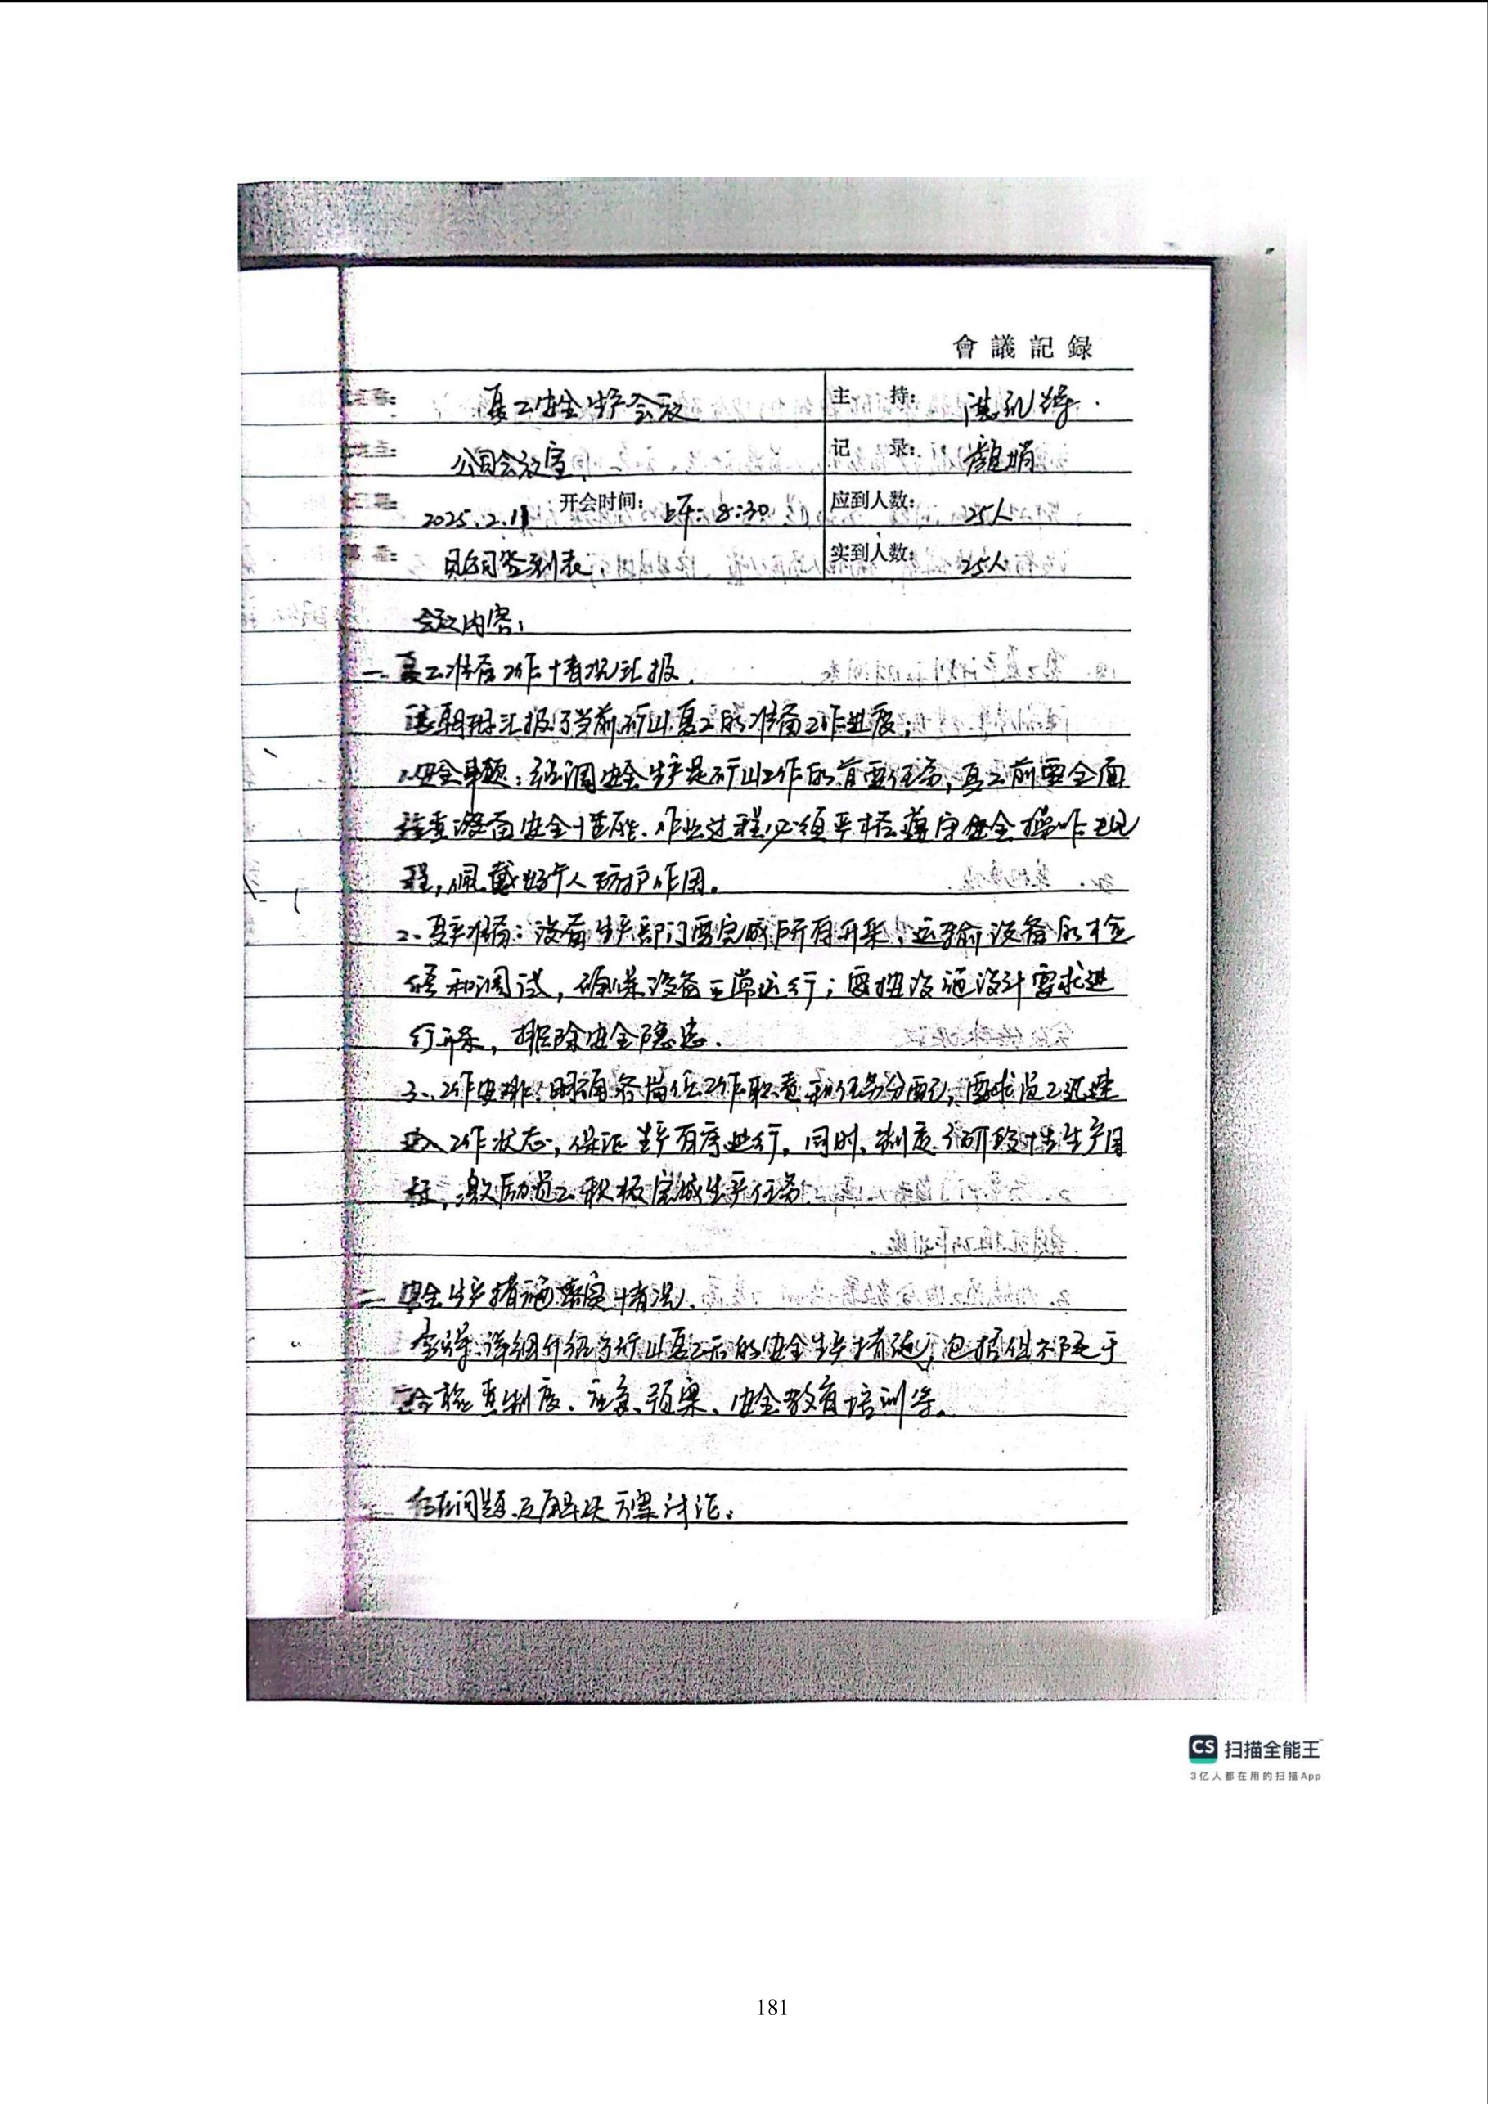 會議記録
复工安全生产会议 主 持:
公司会议室 记 录: 娟
2025.2.11 开会时间: 上午: 8:30 应到人数: 25人
见后签到表 实到人数: 25人
会议内容:
一 复工准备工作情况汇报.
汇报了当前矿山复工的准备工作进度;
1.安全事项: 强调安全生产是矿山工作的首要任务, 复工前要全面
检查设备安全性能、作业过程必须严格遵守安全操作规
程, 佩戴好个人防护作用。
2. 复产准备: 设备生产部门要完成所有开采、运输设备的检
修和调试, 确保设备正常运行; 要按设施设计要求进
行开采, 排除安全隐患.
3、工作安排: 明确各岗位工作职责和任务分配, 要求员工迅速
进入工作状态, 保证生产有序进行, 同时, 制定了阶段性生产目
标, 激励员工积极完成生产任务
二 安全生产措施落实情况.
详细介绍了矿山复工后的安全生产措施, 包括但不限于
检查制度、应急预案、安全教育培训等。
存在问题及解决方案讨论:
CS 扫描全能王
3亿人都在用的扫描App
181